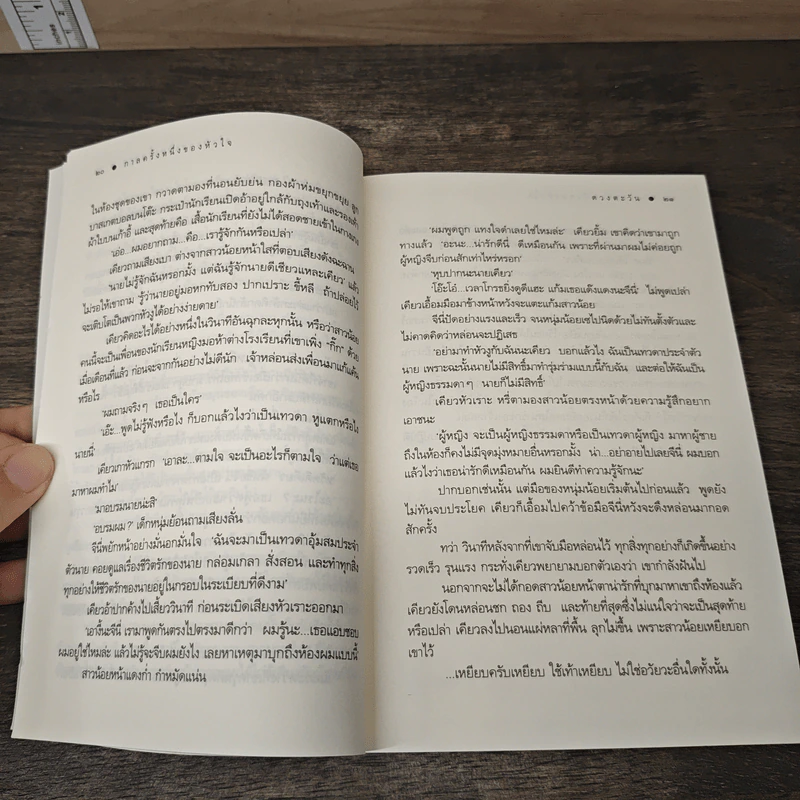 ๒๐ ● กาลครั้งหนึ่งของหัวใจ
ในห้องชุดของเขา กวาดตามองที่นอนยับย่น กองผ้าห่มขยุกขยุย ลูก
บาสเกตบอลบนโต๊ะ กระเป๋านักเรียนเปิดอ้าอยู่ใกล้กับถุงเท้าและรองเท้า
ผ้าใบบนเก้าอี้ และสุดท้ายคือ เสื้อนักเรียนที่ยังไม่ได้สอดชายเข้าในกางเกง
'เอ่อ...ผมอยากถาม...คือ...เรารู้จักกันหรือเปล่า'
เคียวถามเสียงเบา ต่างจากสาวน้อยหน้าใสที่ตอบเสียงดังฉะฉาน
'นายไม่รู้จักฉันหรอกมั้ง แต่ฉันรู้จักนายดีเชียวแหละเคียว' แล้ว
ไม่รอให้เขาถาม 'รู้ว่านายอยู่มอหกทับสอง ปากเปราะ ขี้หลี ถ้าปล่อยไว้
จะเติบโตเป็นพวกหัวงูได้อย่างง่ายดาย'
เคียวคิดอะไรได้อย่างหนึ่งในวินาทีอันฉุกละหุกนั้น หรือว่าสาวน้อย
คนนี้จะเป็นเพื่อนของนักเรียนหญิงมอห้าต่างโรงเรียนที่เขาเพิ่ง "กิ๊ก" ด้วย
เมื่อเดือนที่แล้ว ก่อนจะจากกันอย่างไม่ดีนัก เจ้าหล่อนส่งเพื่อนมาแก้แค้น
หรือไร
'ผมถามจริงๆ เธอเป็นใคร'
'เอ๊ะ...พูดไม่รู้ฟังหรือไง ก็บอกแล้วไงว่าเป็นเทวดา หูแตกหรือไง
นายนี่'
เคียวเกาหัวแกรก 'เอาละ...ตามใจ จะเป็นอะไรก็ตามใจ ว่าแต่เธอ
มาหาผมทำไม'
'มาอบรมนายน่ะสิ'
'อบรมผม?' เด็กหนุ่มย้อนถามเสียงลั่น
จีนี่พยักหน้าอย่างมั่นอกมั่นใจ 'ฉันจะมาเป็นเทวดาอุ้มสมประจำ
ตัวนาย คอยดูแลเรื่องชีวิตรักของนาย กล่อมเกลา สั่งสอน และทำทุกสิ่ง
ทุกอย่างให้ชีวิตรักของนายอยู่ในกรอบในระเบียบที่ดีงาม'
เคียวอ้าปากค้างไปเสี้ยววินาที ก่อนระเบิดเสียงหัวเราะออกมา
'เอางี้นะจีนี่ เรามาพูดกันตรงไปตรงมาดีกว่า ผมรู้นะ...เธอแอบชอบ
ผมอยู่ใช่ไหมล่ะ แล้วไม่รู้จะจีบผมยังไง เลยหาเหตุมาบุกถึงห้องผมแบบนี้
สาวน้อยหน้าแดงก่ำ กำหมัดแน่น
ดวงตะวัน ● ๒๑
'ผมพูดถูก แทงใจดำเลยใช่ไหมล่ะ' เคียวยิ้ม เขาคิดว่าเขามาถูก
ทางแล้ว 'อะนะ...น่ารักดีนี่ ดีเหมือนกัน เพราะที่ผ่านมาผมไม่ค่อยถูก
ผู้หญิงจีบก่อนสักเท่าไหร่หรอก'
'หุบปากนะนายเคียว'
'โอ๊ะโอ๋...เวลาโกรธยิ่งดูดีแฮะ แก้มเธอแด๊งแดงนะจีนี่' ไม่พูดเปล่า
เคียวเอื้อมมือมาข้างหน้าหวังจะแตะแก้มสาวน้อย
จีนี่ปัดอย่างแรงและเร็ว จนหนุ่มน้อยเซไปนิดด้วยไม่ทันตั้งตัวและ
ไม่คาดคิดว่าหล่อนจะปฏิเสธ
'อย่ามาทำหัวงูกับฉันนะเคียว บอกแล้วไง ฉันเป็นเทวดาประจำตัว
นาย เพราะฉะนั้นนายไม่มีสิทธิ์มาทำรุ่มร่ามแบบนี้กับฉัน และต่อให้ฉันเป็น
ผู้หญิงธรรมดาๆ นายก็ไม่มีสิทธิ์'
เคียวหัวเราะ หรี่ตามองสาวน้อยตรงหน้าด้วยความรู้สึกอยาก
เอาชนะ
'ผู้หญิง จะเป็นผู้หญิงธรรมดาหรือเป็นเทวดาผู้หญิง มาหาผู้ชาย
ถึงในห้องก็คงไม่มีจุดมุ่งหมายอื่นหรอกมั้ง น่า...อย่าอายไปเลยจีนี่ ผมบอก
แล้วไงว่าเธอน่ารักดีเหมือนกัน ผมยินดีทำความรู้จักนะ'
ปากบอกเช่นนั้น แต่มือของหนุ่มน้อยเริ่มต้นไปก่อนแล้ว พูดยัง
ไม่ทันจบประโยค เคียวก็เอื้อมไปคว้าข้อมือจีนี่หวังจะดึงหล่อนมากอด
สักครั้ง
ทว่า วินาทีหลังจากที่เขาจับมือหล่อนไว้ ทุกสิ่งทุกอย่างก็เกิดขึ้นอย่าง
รวดเร็ว รุนแรง กระทั่งเคียวพยายามบอกตัวเองว่า เขากำลังฝันไป
นอกจากจะไม่ได้กอดสาวน้อยหน้าตาน่ารักที่บุกมาหาเขาถึงห้องแล้ว
เคียวยังโดนหล่อนชก ถอง ถีบ และท้ายที่สุดซึ่งไม่แน่ใจว่าจะเป็นสุดท้าย
หรือเปล่า เคียวลงไปนอนแผ่หลาที่พื้น ลุกไม่ขึ้น เพราะสาวน้อยเหยียบอก
เขาไว้
...เหยียบครับเหยียบ ใช้เท้าเหยียบ ไม่ใช่อวัยวะอื่นใดทั้งนั้น